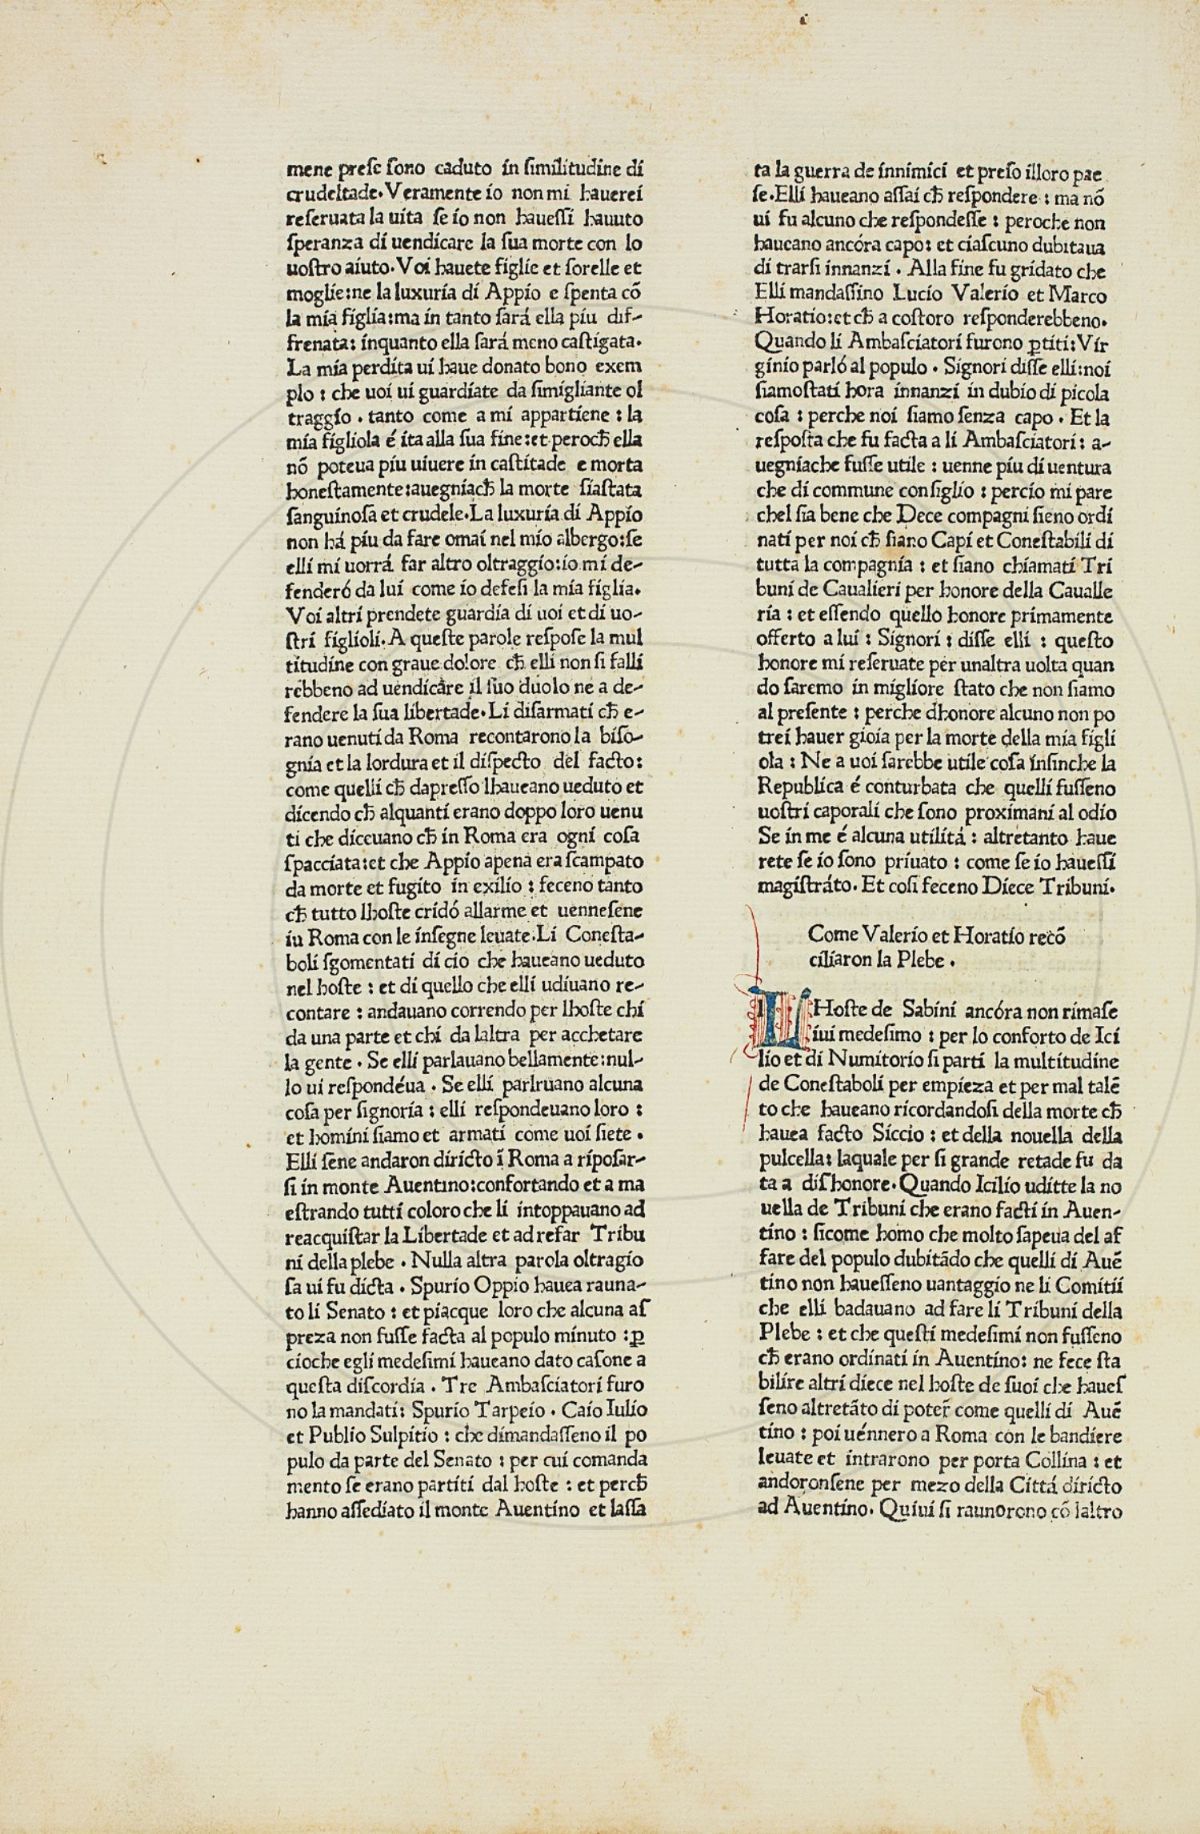 mene prese sono caduto in similitudine di
crudeltade. Veramente io non mi hauerei
reseruata la uita se io non hauessi hauuto
speranza di uendicare la sua morte con lo
uostro aiuto. Voi hauete figlie et sorelle et
moglie: ne la luxuria di Appio e spenta cõ
la mia figlia: ma in tanto sará ella piu dif-
frenata: inquanto ella sará meno castigata.
La mia perdita ui haue donato bono exem
plo : che uoi ui guardiate da simigliante ol
traggio . tanto come a mi appartiene : la
mia figliola é ita alla sua fine: et peroch̄ ella
nõ poteua piu uiuere in castitade e morta
honestamente: auegniach̄ la morte sia stata
sanguinosa et crudele. La luxuria di Appio
non há piu da fare omai nel mio albergo: se
elli mi uorrá far altro oltraggio: io mi de-
fenderó da lui come io defesi la mia figlia.
Voi altri prendete guardia di uoi et di uo-
stri figlioli. A queste parole respose la mul
titudine con graue dolore ch̄ elli non si falli
rebbeno ad uendicare il suo duolo ne a de-
fendere la sua libertade. Li disarmati ch̄ e-
rano uenuti da Roma recontarono la biso-
gnia et la lordura et il dispecto del facto:
come quelli ch̄ dapresso lhaueano ueduto et
dicendo ch̄ alquanti erano doppo loro uenu
ti che diceuano ch̄ in Roma era ogni cosa
spacciata: et che Appio apena era scampato
da morte et fugito in exilio : feceno tanto
ch̄ tutto lhoste cridó allarme et uennesene
iu Roma con le insegne leuate. Li Conesta-
boli sgomentati di cio che haueano ueduto
nel hoste : et di quello che elli udiuano re-
contare : andauano correndo per lhoste chi
da una parte et chi da laltra per acchetare
la gente . Se elli parlauano bellamente: nul-
lo ui respondéua . Se elli parlruano alcuna
cosa per signoria : elli respondeuano loro :
et homini siamo et armati come uoi siete .
Elli sene andaron diricto ĩ Roma a riposar-
si in monte Auentino: confortando et a ma
estrando tutti coloro che li intoppauano ad
reacquistar la Libertade et ad refar Tribu
ni della plebe . Nulla altra parola oltragio
sa ui fu dicta . Spurio Oppio hauea rauna-
to li Senato : et piacque loro che alcuna as
preza non fusse facta al populo minuto : ꝑ
cioche egli medesimi haueano dato casone a
questa discordia . Tre Ambasciatori furo
no la mandati: Spurio Tarpeio . Caio Iulio
et Publio Sulpitio : che dimandasseno il po
pulo da parte del Senato : per cui comanda
mento se erano partiti dal hoste : et perch̄
hanno assediato il monte Auentino et lassa
ta la guerra de innimici et preso illoro pae
se. Elli haueano assai ch̄ respondere : ma nõ
ui fu alcuno che respondesse : peroche non
haueano ancóra capo: et ciascuno dubitaua
di trarsi innanzi . Alla fine fu gridato che
Elli mandassino Lucio Valerio et Marco
Horatio: et ch̄ a costoro responderebbeno.
Quando li Ambasciatori furono ꝑtiti: Vir
ginio parló al populo . Signori disse elli: noi
siamo stati hora innanzi in dubio di picola
cosa : perche noi siamo senza capo . Et la
resposta che fu facta a li Ambasciatori: a-
uegniache fusse utile : uenne piu di uentura
che di commune consiglio : percio mi pare
chel sia bene che Dece compagni sieno ordi
nati per noi ch̄ siano Capi et Conestabili di
tutta la compagnia : et siano chiamati Tri
buni de Caualieri per honore della Caualle
ria : et essendo quello honore primamente
offerto a lui : Signori : disse elli : questo
honore mi reseruate per unaltra uolta quan
do saremo in migliore stato che non siamo
al presente : perche dhonore alcuno non po
trei hauer gioia per la morte della mia figli
ola : Ne a uoi sarebbe utile cosa insinche la
Republica é conturbata che quelli fusseno
uostri caporali che sono proximani al odio
Se in me é alcuna utilitá : altretanto haue
rete se io sono priuato : come se io hauessi
magistráto. Et cosi feceno Diece Tribuni.
Come Valerio et Horatio recõ
ciliaron la Plebe .
LHoste de Sabini ancóra non rimase
iui medesimo : per lo conforto de Ici
lio et di Numitorio si parti la multitudine
de Conestaboli per empieza et per mal talẽ
to che haueano ricordandosi della morte ch̄
hauea facto Siccio : et della nouella della
pulcella: laquale per si grande retade fu da
ta a dishonore. Quando Icilio uditte la no
uella de Tribuni che erano facti in Auen-
tino : sicome homo che molto sapeua del af
fare del populo dubitãdo che quelli di Auẽ
tino non hauesseno uantaggio ne li Comitii
che elli badauano ad fare li Tribuni della
Plebe : et che questi medesimi non fusseno
ch̄ erano ordinati in Auentino: ne fece sta
bilire altri diece nel hoste de suoi che haues
seno altretãto di poter̃ come quelli di Auẽ
tino : poi uénnero a Roma con le bandiere
leuate et intrarono per porta Collina : et
andoronsene per mezo della Cittá diricto
ad Auentino. Quiui si raunorono cõ laltro